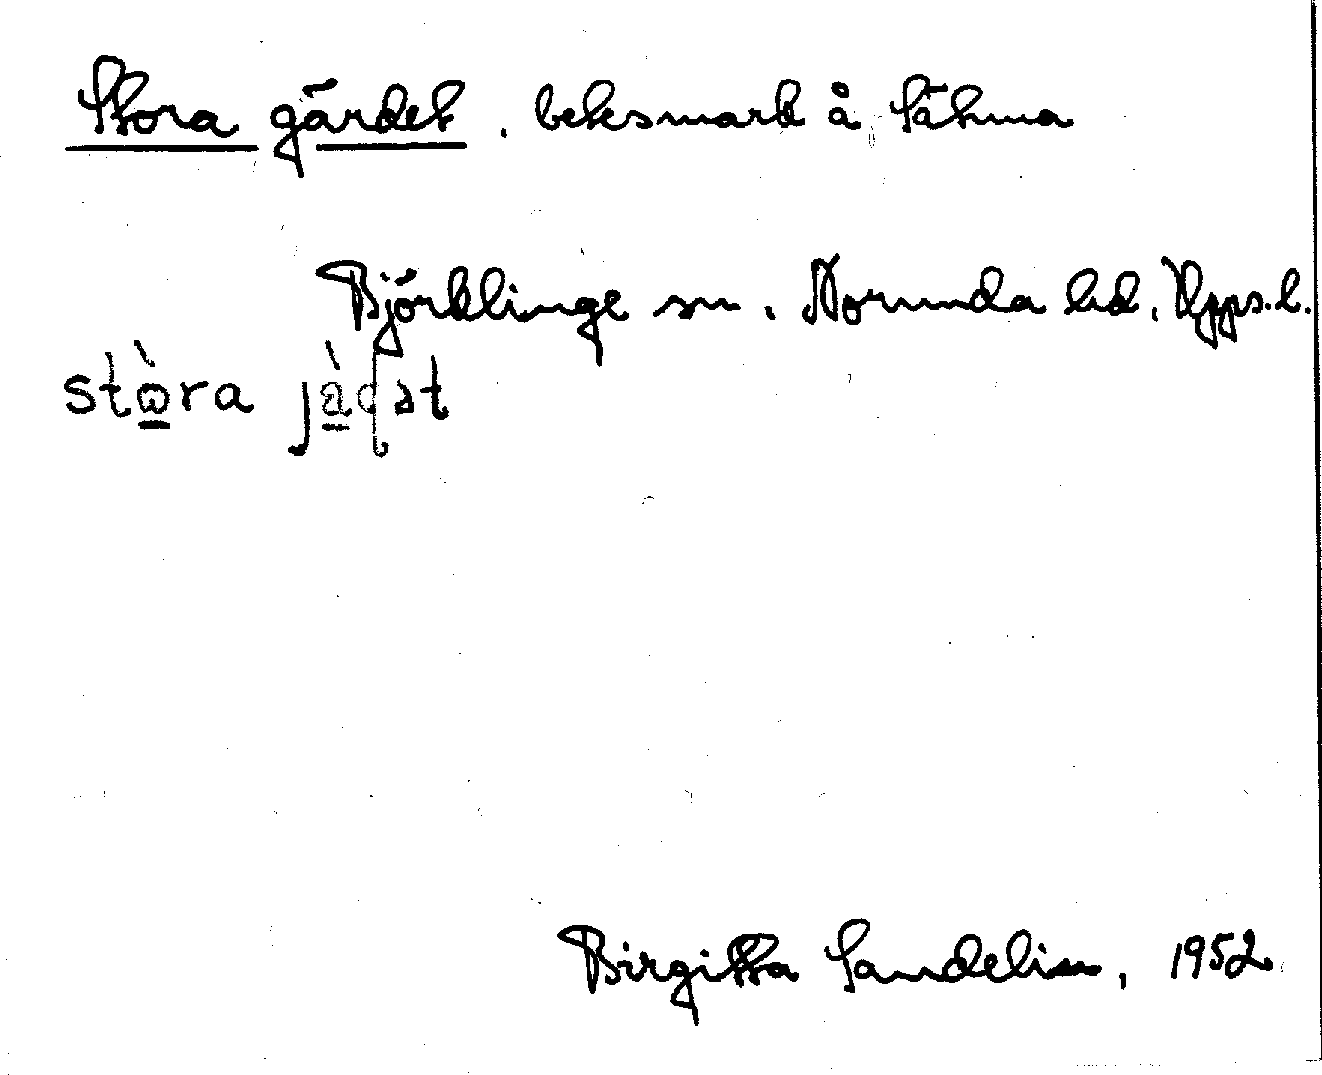 Stora gärdet, betesmark å Sätuna
Björklinge sn, Norunda hd, Upps.l.
Birgitta Sandelin, 1952